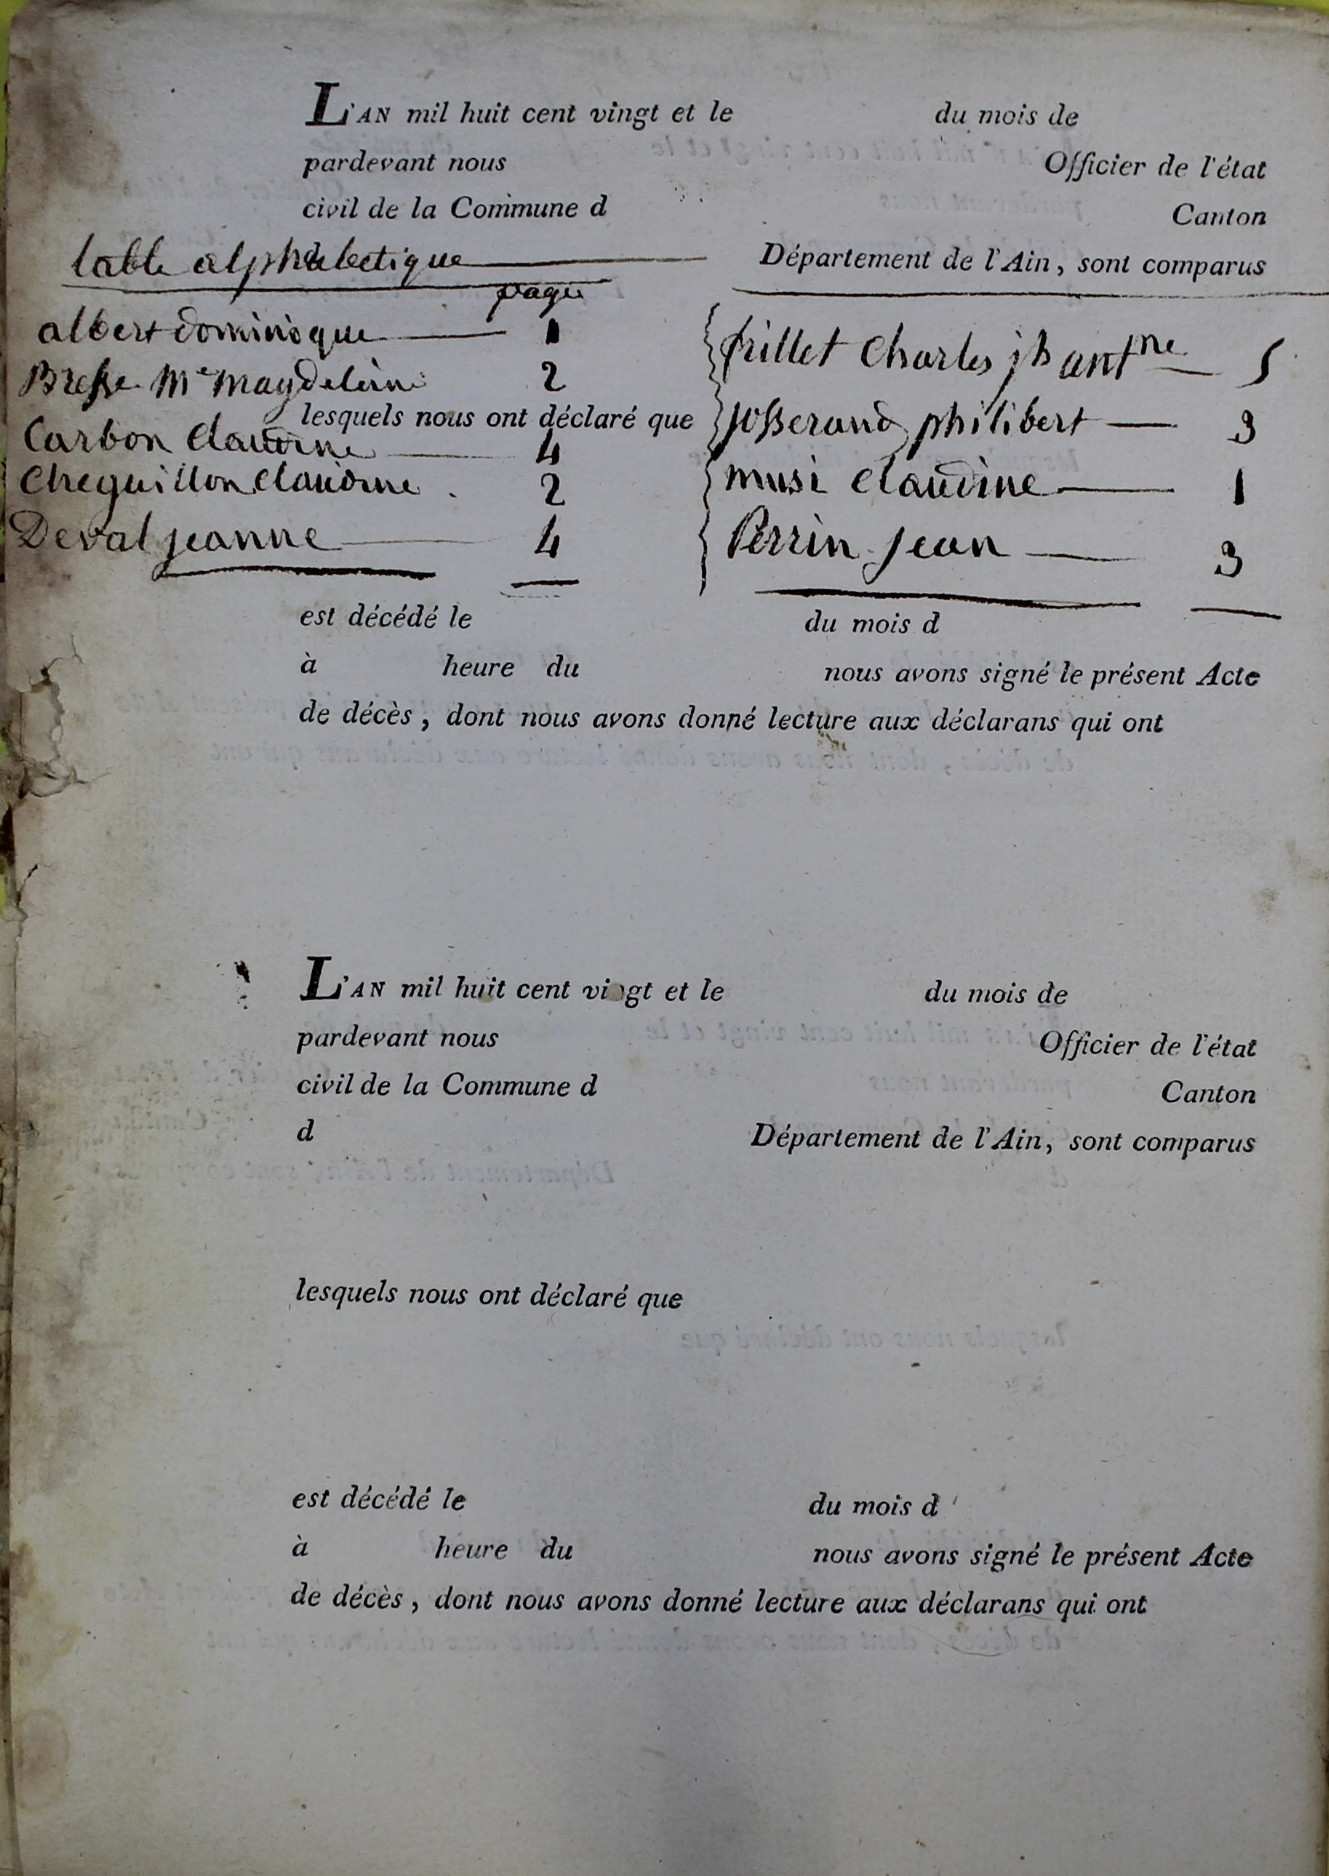 L'AN mil huit cent vingt et le du mois de
pardevant nous Officier de l'état
civil de la Commune d Canton
table alphabetique Département de l'Ain, sont comparus
page
albert dominique 1
Bresse Me magdeleine 2
Carbon Claudine 4
Cheguillon Claudine 2
Deval jeanne 4
frillet Charles jh antne 5
josserand philibert 3
musi Claudine 1
Perrin jean 3
lesquels nous ont déclaré que
est décédé le du mois d
à heure du nous avons signé le présent Acte
de décès, dont nous avons donné lecture aux déclarans qui ont
L'AN mil huit cent vingt et le du mois de
pardevant nous Officier de l'état
civil de la Commune d Canton
d Département de l'Ain, sont comparus
lesquels nous ont déclaré que
est décédé le du mois d
à heure du nous avons signé le présent Acte
de décès, dont nous avons donné lecture aux déclarans qui ont